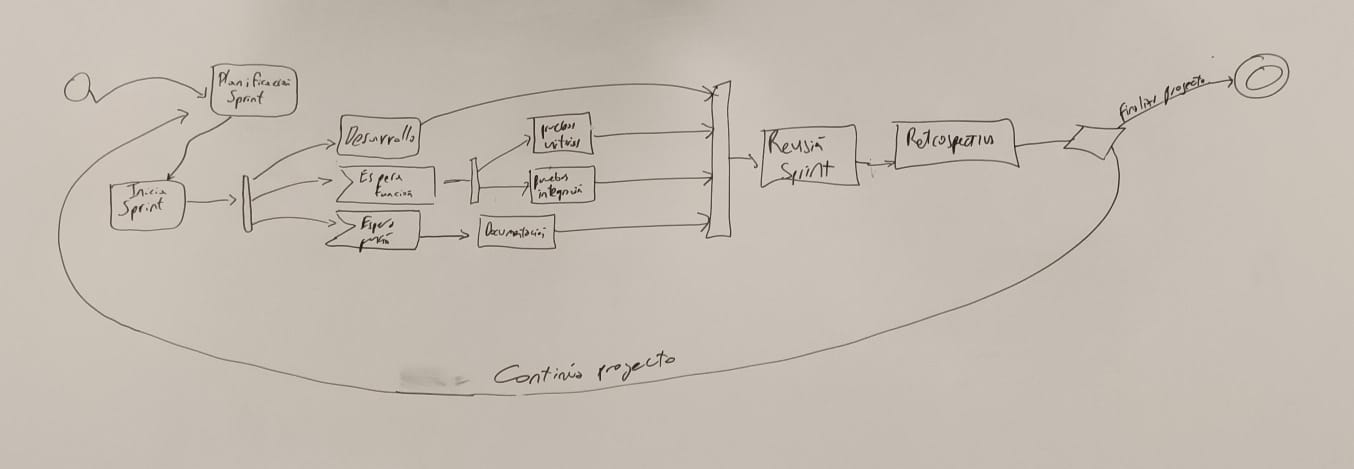 Planificación
Sprint
Inicia
Sprint
Desarrollo
Espera
función
Espera
pruebas
unitarias
pruebas
integración
Documentación
Revisión
Sprint
Retrospectiva
Finalizar proyecto
Continúa proyecto